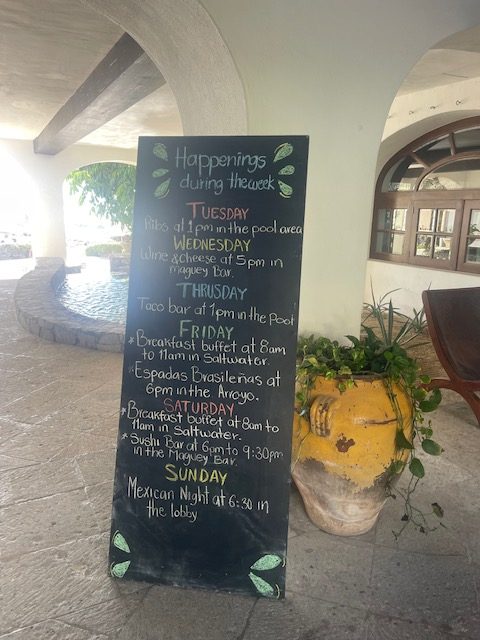 Happenings
during the week
TUESDAY
Ribs at 1pm in the pool area
WEDNESDAY
Wine & Cheese at 5pm in
maguey Bar.
THRUSDAY
Taco bar at 1pm in the Pool
FRIDAY
*Breakfast buffet at 8am
to 11am in Saltwater.
*Espadas Brasileñas at
6pm in the Arroyo.
SATURDAY
*Breakfast buffet at 8am to
11am in Saltwater.
*Sushi Bar at 6pm to 9:30pm
in the Maguey Bar.
SUNDAY
Mexican Night at 6:30 in
the lobby